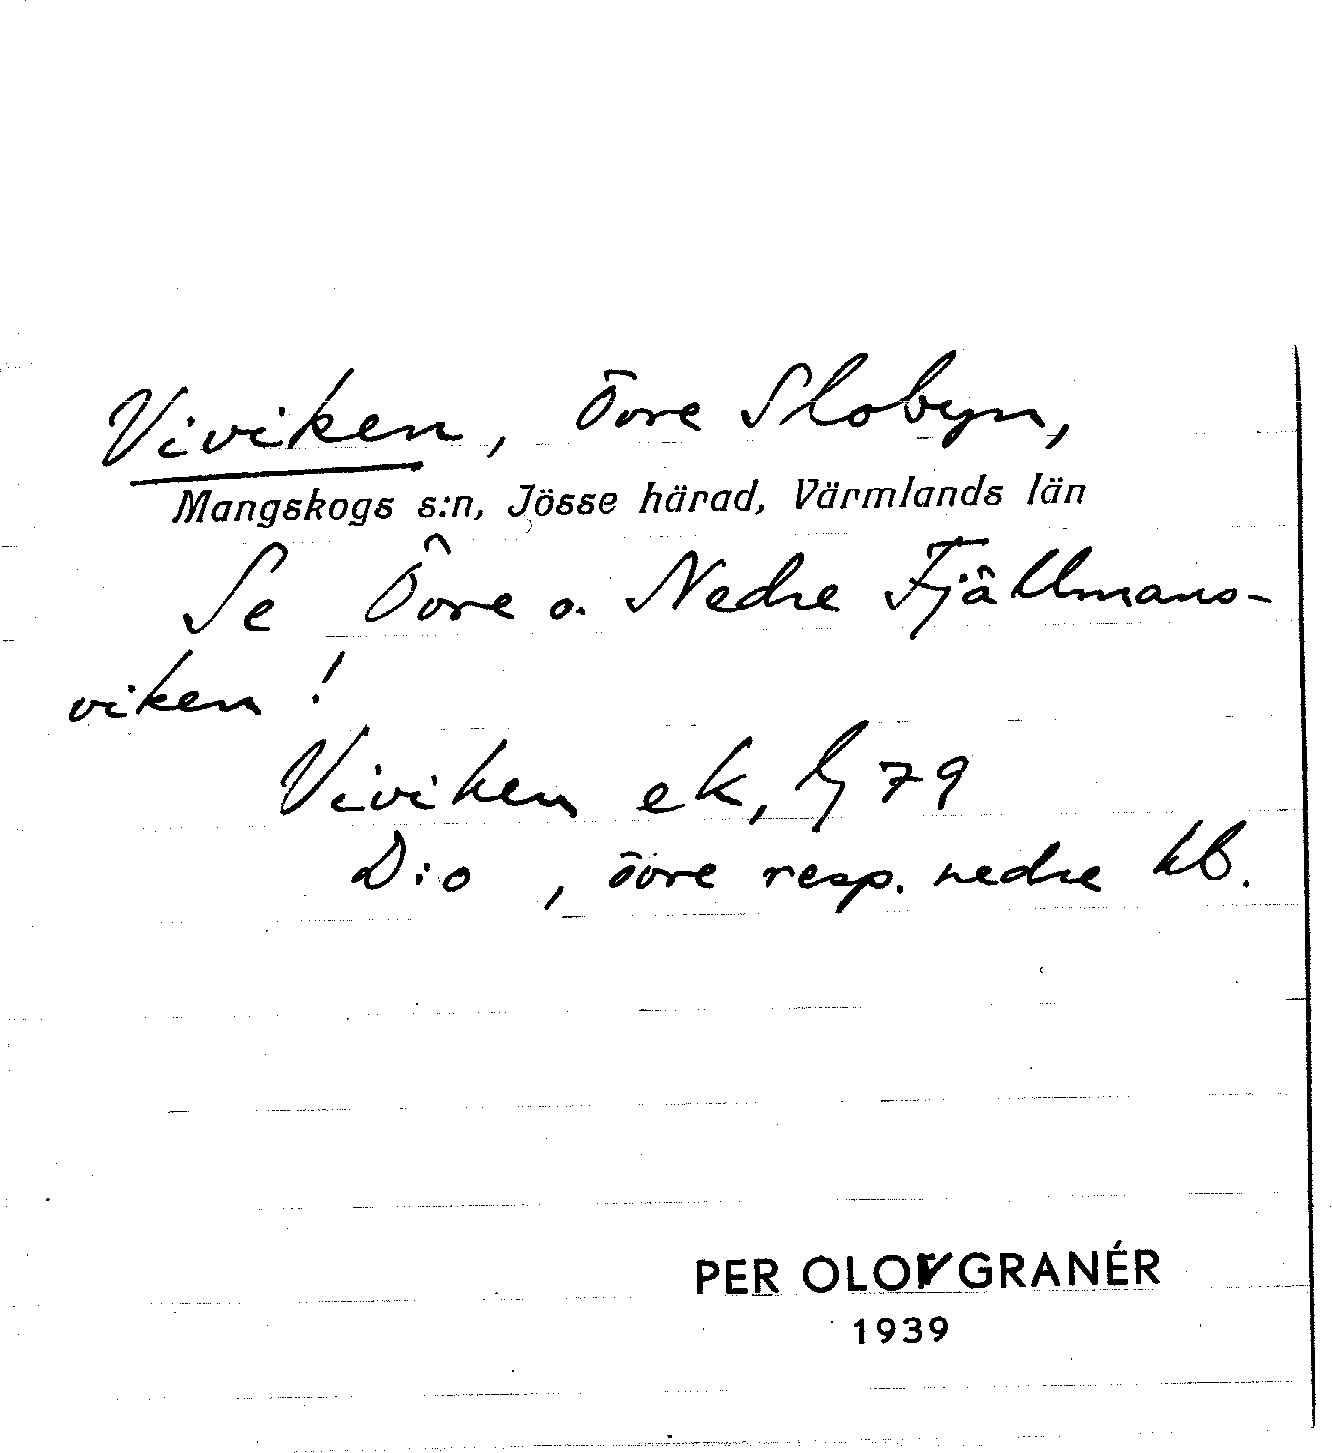 Viviken, Övre Slobyn,
Mangskogs s:n, Jösse härad, Värmlands län
Se Övre o. Nedre Fjällmans-
viken!
Viviken ek, 79
D:o , övre resp. nedre kb.
PER OLOV GRANÉR
1939